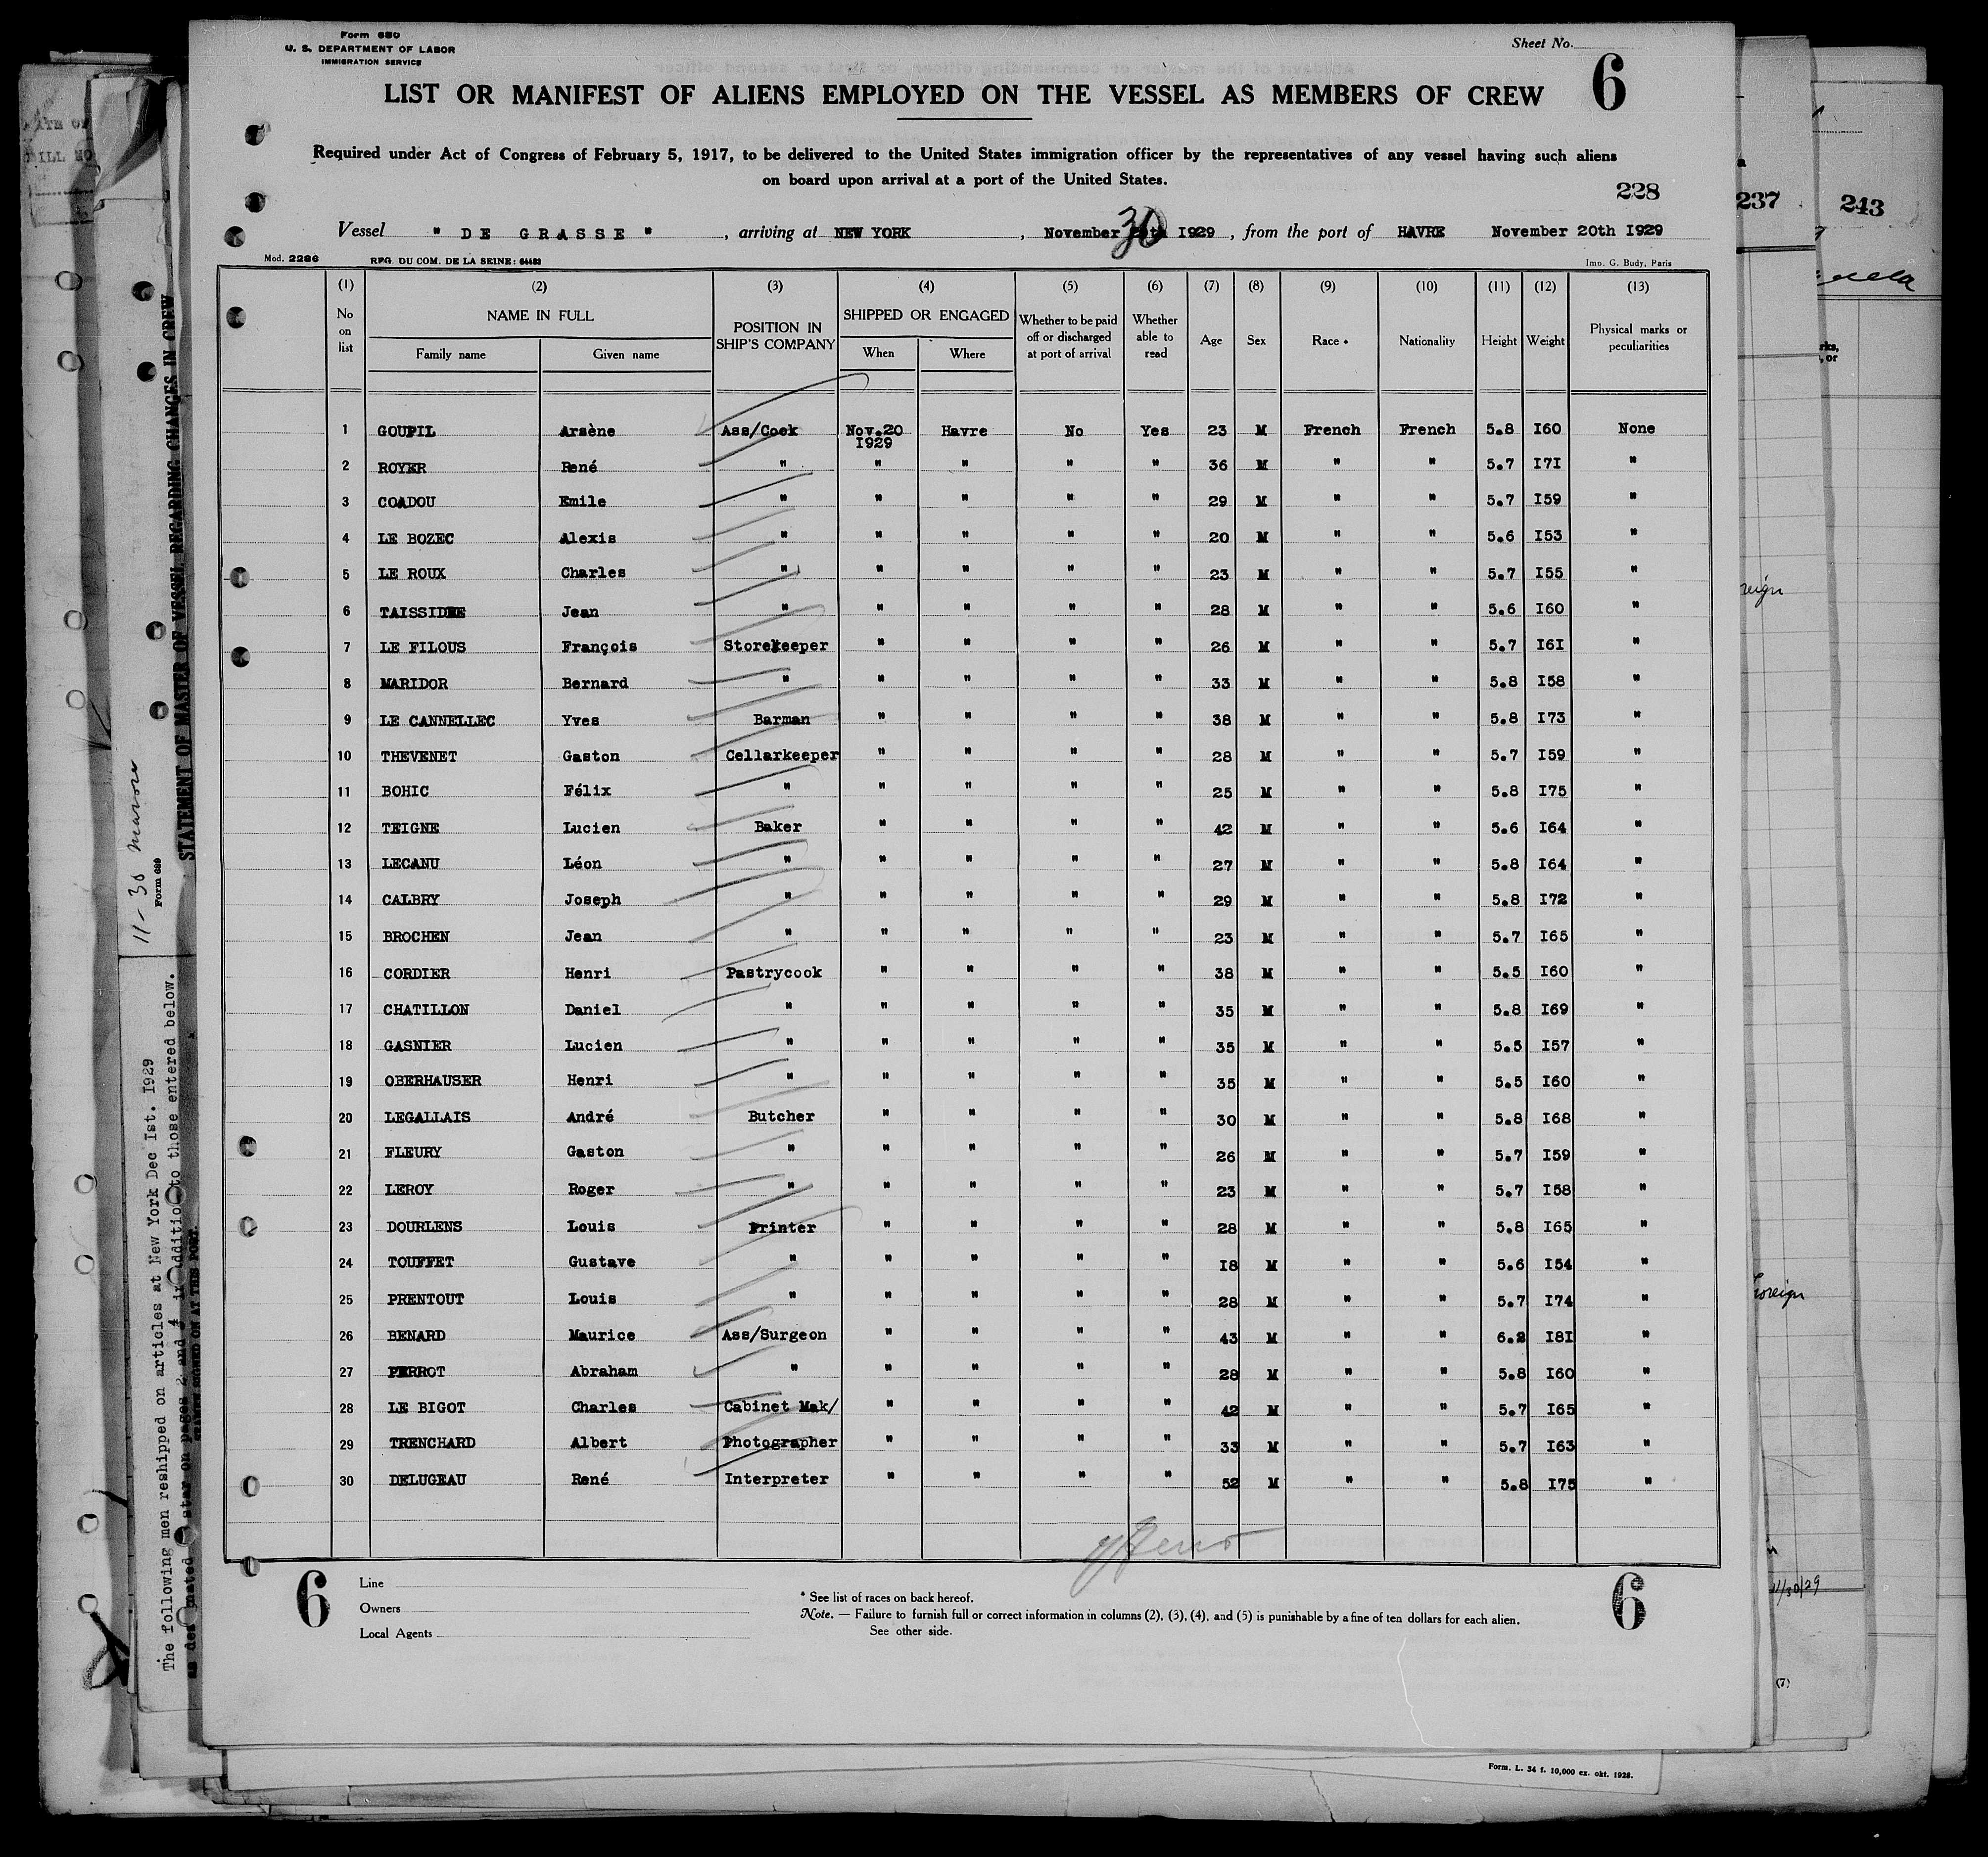 Form 680
U. S. DEPARTMENT OF LABOR
IMMIGRATION SERVICE
Sheet No.
6
LIST OR MANIFEST OF ALIENS EMPLOYED ON THE VESSEL AS MEMBERS OF CREW
Required under Act of Congress of February 5, 1917, to be delivered to the United States immigration officer by the representatives of any vessel having such aliens
on board upon arrival at a port of the United States.
228
237
243
Vessel " DE GRASSE " , arriving at NEW YORK , November 30 I929 , from the port of HAVRE November 20th I929
Mod. 2286 REG. DU COM. DE LA SEINE: 64483 Imp. G. Budy, Paris
(1) (2) (3) (4) (5) (6) (7) (8) (9) (10) (11) (12) (13)
No on list NAME IN FULL Family name Given name POSITION IN SHIP'S COMPANY SHIPPED OR ENGAGED When Where Whether to be paid off or discharged at port of arrival Whether able to read Age Sex Race * Nationality Height Weight Physical marks or peculiarities
1 GOUPIL Arsène Ass/Cook Nov.20 I929 Havre No Yes 23 M French French 5.8 I60 None
2 ROYER René " " " " " 36 M " " 5.7 I7I "
3 COADOU Emile " " " " " 29 M " " 5.7 I59 "
4 LE BOZEC Alexis " " " " " 20 M " " 5.6 I53 "
5 LE ROUX Charles " " " " " 23 M " " 5.7 I55 "
6 Jean " " " " " 28 M " " 5.6 I60 "
7 LE FILOUS François Storekeeper " " " " 26 M " " 5.7 I6I "
8 MARIDOR Bernard " " " " " 33 M " " 5.8 I58 "
9 LE CANNELLEC Yves Barman " " " " 38 M " " 5.8 I73 "
10 THEVENET Gaston Cellarkeeper " " " " 28 M " " 5.7 I59 "
11 BOHIC Félix " " " " " 25 M " " 5.8 I75 "
12 TEIGNE Lucien Baker " " " " 42 M " " 5.6 I64 "
13 LECANU Léon " " " " " 27 M " " 5.8 I64 "
14 CALBRY Joseph " " " " " 29 M " " 5.8 I72 "
15 BROCHEN Jean " " " " " 23 M " " 5.7 I65 "
16 CORDIER Henri Pastrycook " " " " 38 M " " 5.5 I60 "
17 CHATILLON Daniel " " " " " 35 M " " 5.8 I69 "
18 GASNIER Lucien " " " " " 35 M " " 5.5 I57 "
19 OBERHAUSER Henri " " " " " 35 M " " 5.5 I60 "
20 LEGALLAIS André Butcher " " " " 30 M " " 5.8 I68 "
21 FLEURY Gaston " " " " " 26 M " " 5.7 I59 "
22 LEROY Roger " " " " " 23 M " " 5.7 I58 "
23 DOURLENS Louis Printer " " " " 28 M " " 5.8 I65 "
24 TOUFFET Gustave " " " " " I8 M " " 5.6 I54 "
25 PRENTOUT Louis " " " " " 28 M " " 5.7 I74 "
26 BENARD Maurice Ass/Surgeon " " " " 43 M " " 6.2 I8I "
27 PERROT Abraham " " " " " 28 M " " 5.8 I60 "
28 LE BIGOT Charles Cabinet Mak/ " " " " 42 M " " 5.7 I65 "
29 TRENCHARD Albert Photographer " " " " 33 M " " 5.7 I63 "
30 DELUGEAU René Interpreter " " " " 52 M " " 5.8 I75 "
6
Line
Owners
Local Agents
* See list of races on back hereof.
Note. — Failure to furnish full or correct information in columns (2), (3), (4), and (5) is punishable by a fine of ten dollars for each alien.
See other side.
6
Form. L. 34 f. 10,000 ex. okt. 1928.
STATEMENT OF MASTER OF VESSEL REGARDING CHANGES IN CREW
Form 689
11-30
The following men reshipped on articles at New York Dec Ist. I929
star on pages 2 and 4 in addition to those entered below.
SIGNED ON AT THIS PORT.
reign
Foreign
11/30/29
(7)